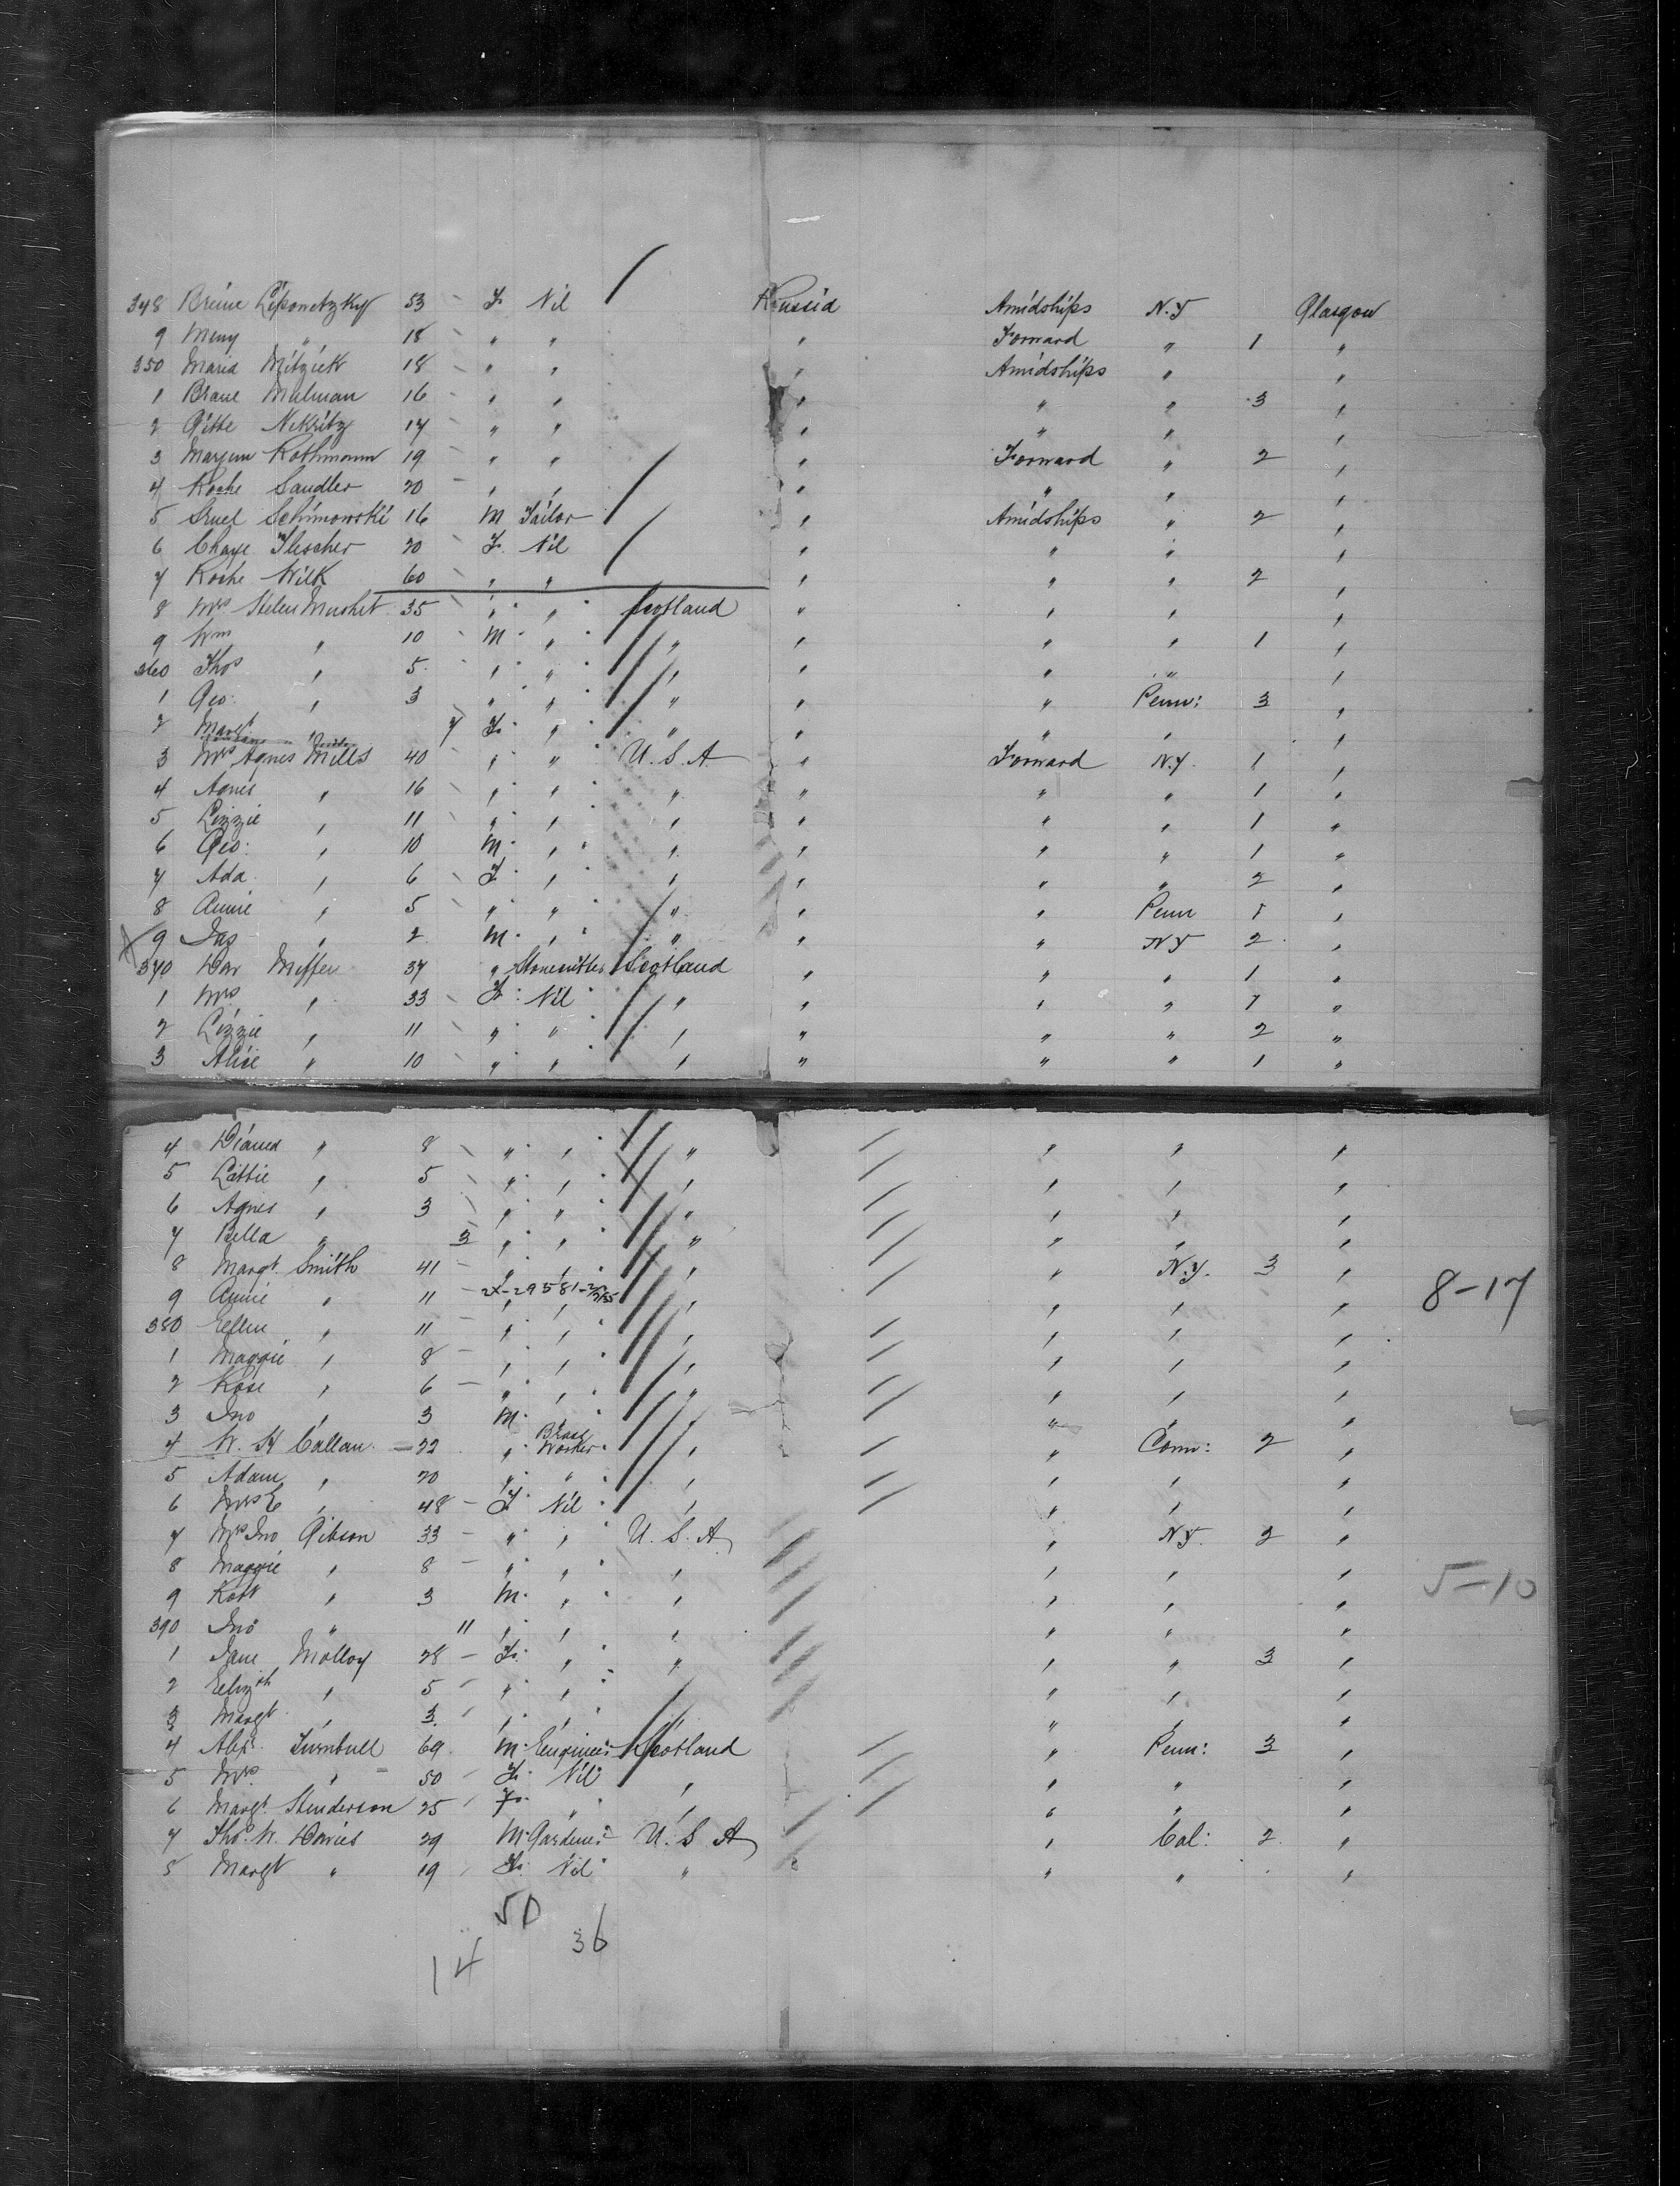 348 Breine Liponetzky 53 - F. Nil Russia Amidships N.Y Glasgow
9 Meny " 18 - " " " Forward " 1 "
350 Maria Mitzick 18 - " " " Amidships " "
1 Brane Mulman 16 - " " " " " 3 "
2 Gitte Nekritz 17 - " " " " " "
3 Maryem Rothmann 19 - " " " Forward " 2 "
4 Roche Sandler 20 - " " " " " "
5 Sruel Schimowski 16 M Tailor " Amidships " 2 "
6 Chaye Flescher 20 - F. Nil " " " "
7 Roche Wilk 60 - " " " " " 2 "
8 Mrs Helen Mushet 35 - " " Scotland " " " "
9 Wm " 10 - M " " " " " 1 "
360 Thos " 5 " " " " " " "
1 Geo: " 3 " " " " " Penn: 3 "
2 Margt " 7 F. " " " " " "
3 Mrs Agnes Mills 40 - " " U.S.A " Forward N.Y. 1 "
4 Agnes " 16 - " " " " " " 1 "
5 Lizzie " 11 - " " " " " " 1 "
6 Geo: " 10 M " " " " " 1 "
7 Ada " 6 - F " " " " " 2 "
8 Annie " 5 - " " " " " Penn 1 "
9 Jas " 2 M " " " " NY 2 "
370 Dav Miffen 37 " Stonecutter Scotland " " " 1 "
1 Mrs " 33 - F. Nil " " " " 1 "
2 Lizzie " 11 - " " " " " " 2 "
3 Alice " 10 - " " " " " " 1 "
4 Diana " 8 - " " " " " "
5 Lettie " 5 - " " " " " "
6 Agnes " 3 - " " " " " "
7 Bella " 3 " " " " " "
8 Margt. Smith 41 - " " " " N.Y. 3 "
9 Annie " 11 - 2X-29581-2/7/35 " " " " " " 8-17
380 Ellen " 11 - " " " " " "
1 Maggie " 8 - " " " " " "
2 Rose " 6 - " " " " " "
3 Jno " 3 M " " " " "
4 W. H Callan - 22 " Brass Worker " " Conn: 2 "
5 Adam " 20 " " " " " "
6 Mrs E " 48 - F Nil " " " "
7 Mrs Jno Gibson 33 - " " U.S.A " NY. 2 "
8 Maggie " 8 - " " " " " " 5-10
9 Robt " 3 M " " " " "
390 Jno " 11 " " " " " "
1 Jane Molloy 28 - F. " " " " 3 "
2 Elizth " 5 - " " " " "
3 Margt " 3 " " " " "
4 Alex. Turnbull 69 M Engineer Scotland " Penn: 3 "
5 Mrs. " 50 - F. Nil " " " "
6 Margt. Henderson 25 F. " " " " "
7 Thos. W. Davies 29 M Gardener U.S.A " Cal: 2 "
8 Margt " 19 F. Nil " " " "
50
14 36